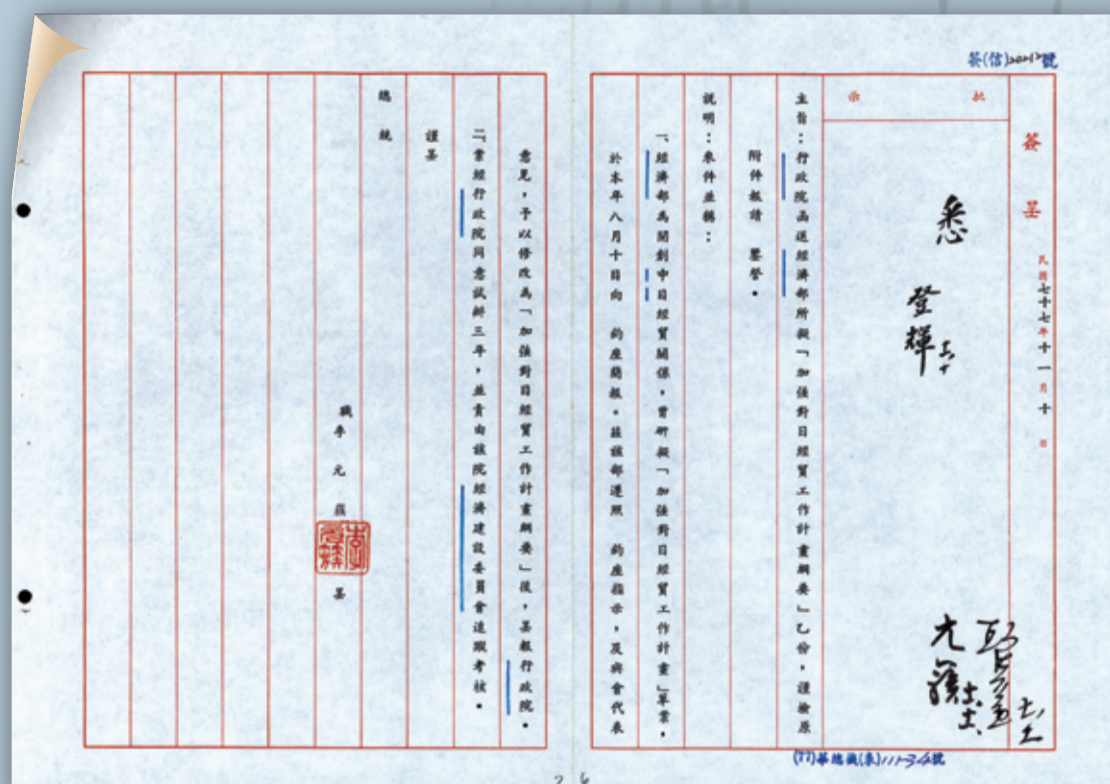 簽(信)號
簽呈
民國七十七年十一月十日
批示
悉
登輝
元簇
主旨：行政院函送經濟部所擬「加強對日經貿工作計畫綱要」乙份，謹檢原
附件報請　鑒詧。
說明：來件並稱：
一、經濟部為開創中日經貿關係，曾研擬「加強對日經貿工作計畫」草案，
於本年八月十日向　鈞座簡報。茲該部遵照　鈞座指示，及與會代表
意見，予以修改為「加強對日經貿工作計畫綱要」後，呈報行政院。
二、業經行政院同意試辦三年，並責由該院經濟建設委員會追蹤考核。
謹呈
總統
職李元簇呈
(77)華總義(泰)號